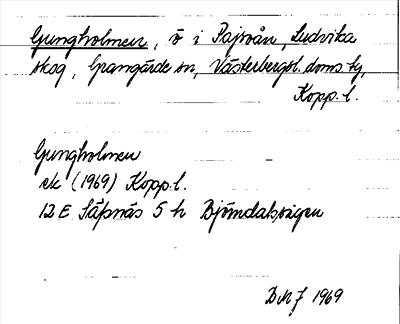 Gungholmen, ö i Pajsoån, Ludvika
skog, Grangärde sn, Västerbergsl. doms. tg,
Kopp. l.
Gungholmen
ek (1969) Kopp. l.
12 E Säfsnäs 5 h Björndalsvägen
1969